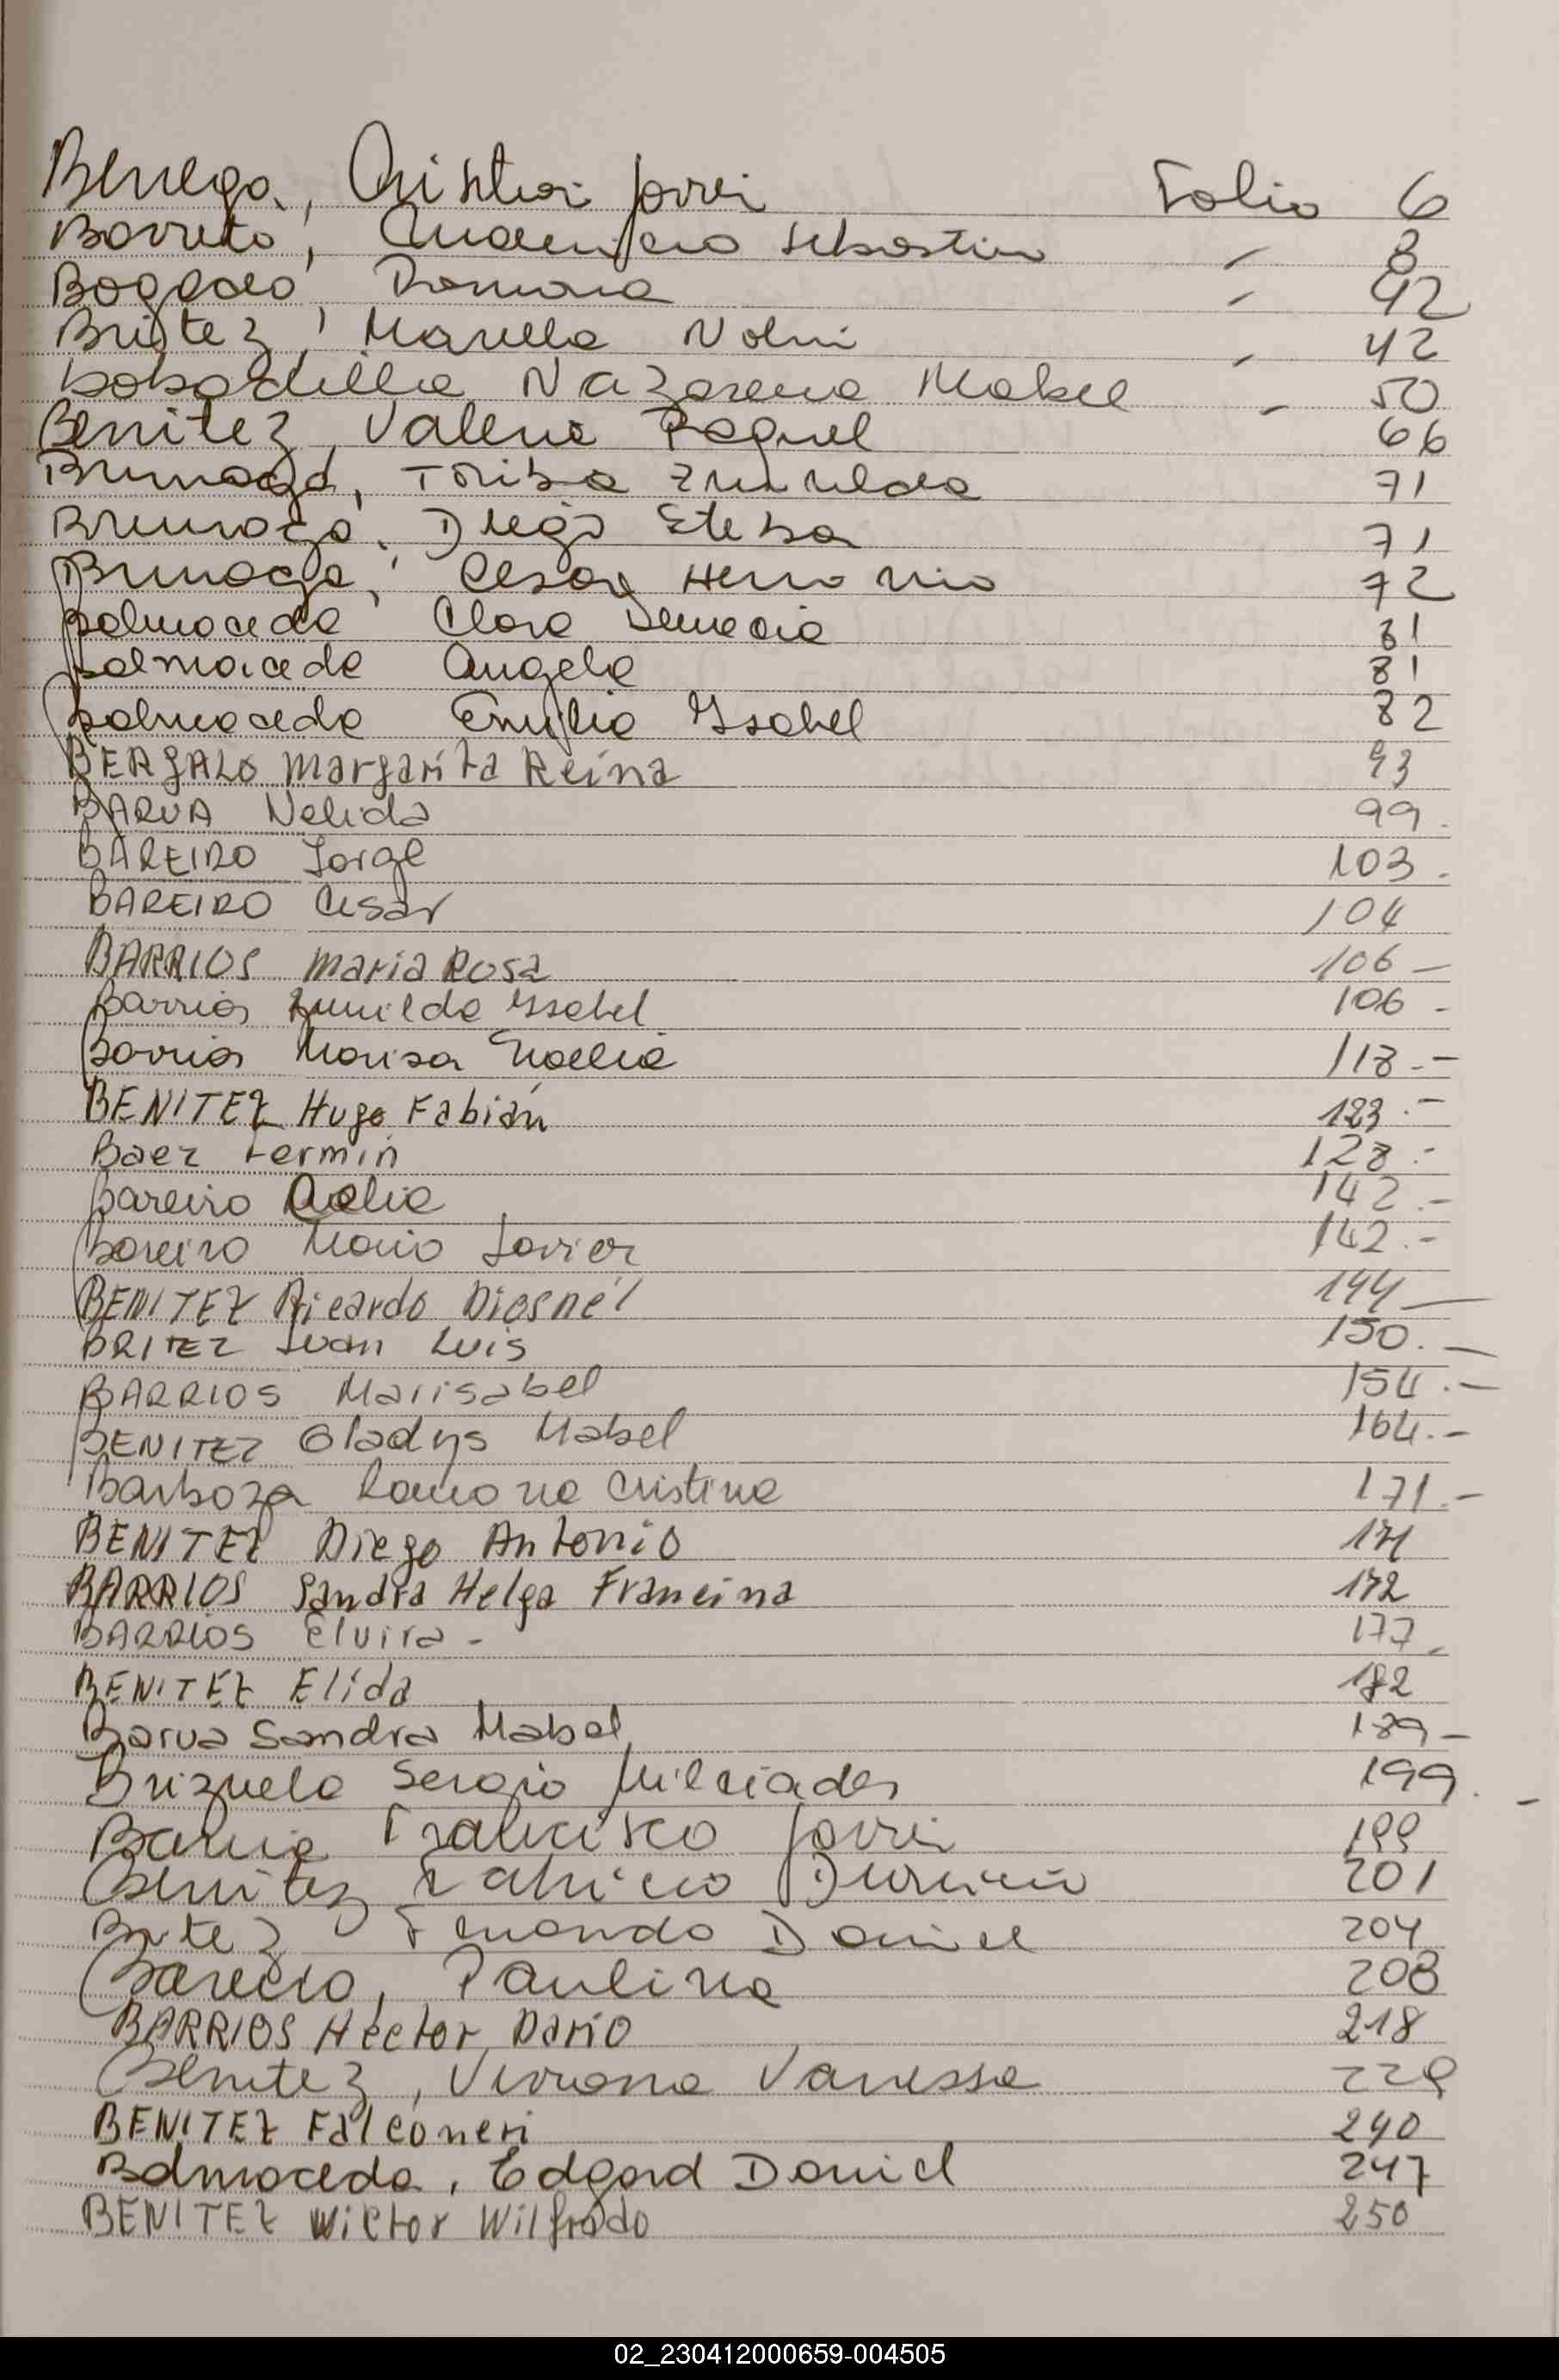 Benega, Cristian Javier Folio 6
Barreto, Sebastian " 8
Bogado Romina " 42
Britez, Mariela Noemi 42
Bobadilla Nazarena Mabel " 50
Benitez, Valeria Raquel 66
Brunaga, Toriba Zunilda 71
Brunaga, Diego Esteba 71
Brunaga, Cesar 72
Balmaceda Clara 81
Balmaceda Angela 81
Balmaceda Emilia Ysabel 82
BERGALO Margarita Reina 93
BARUA Nelida 99.
BAREIRO Jorge 103.
BAREIRO Cesar 104
BARRIOS Maria Rosa 106 -
Barrios Zunilda Ysabel 106 -
Barrios Marisa Noelia 118.-
BENITEZ Hugo Fabián 123.-
Baez Fermin 128.-
Bareiro Delia 142.-
Bareiro Mario Javier 142.-
BENITEZ Ricardo Diosnel 144 -
BRITEZ Juan Luis 150.-
BARRIOS Marisabel 154.-
BENITEZ Gladys Mabel 164.-
Barboza Ramona Cristina 171.-
BENITEZ Diego Antonio 171
BARRIOS Sandra Helga Francina 172
BARRIOS Elvira - 177.
BENITEZ Elida 182
Barua Sandra Mabel 189 -
Brizuela Sergio Milciades 199.-
Francisco Javier 199
Benitez 201
Britez Fernando Daniel 204
Bareiro, Paulina 208
BARRIOS Hector Dario 218
Benitez, Viviana Vanessa 229
BENITEZ Falconeri 240
Balmaceda, Edgard Daniel 247
BENITEZ Wictor Wilfrado 250
02_230412000659-004505